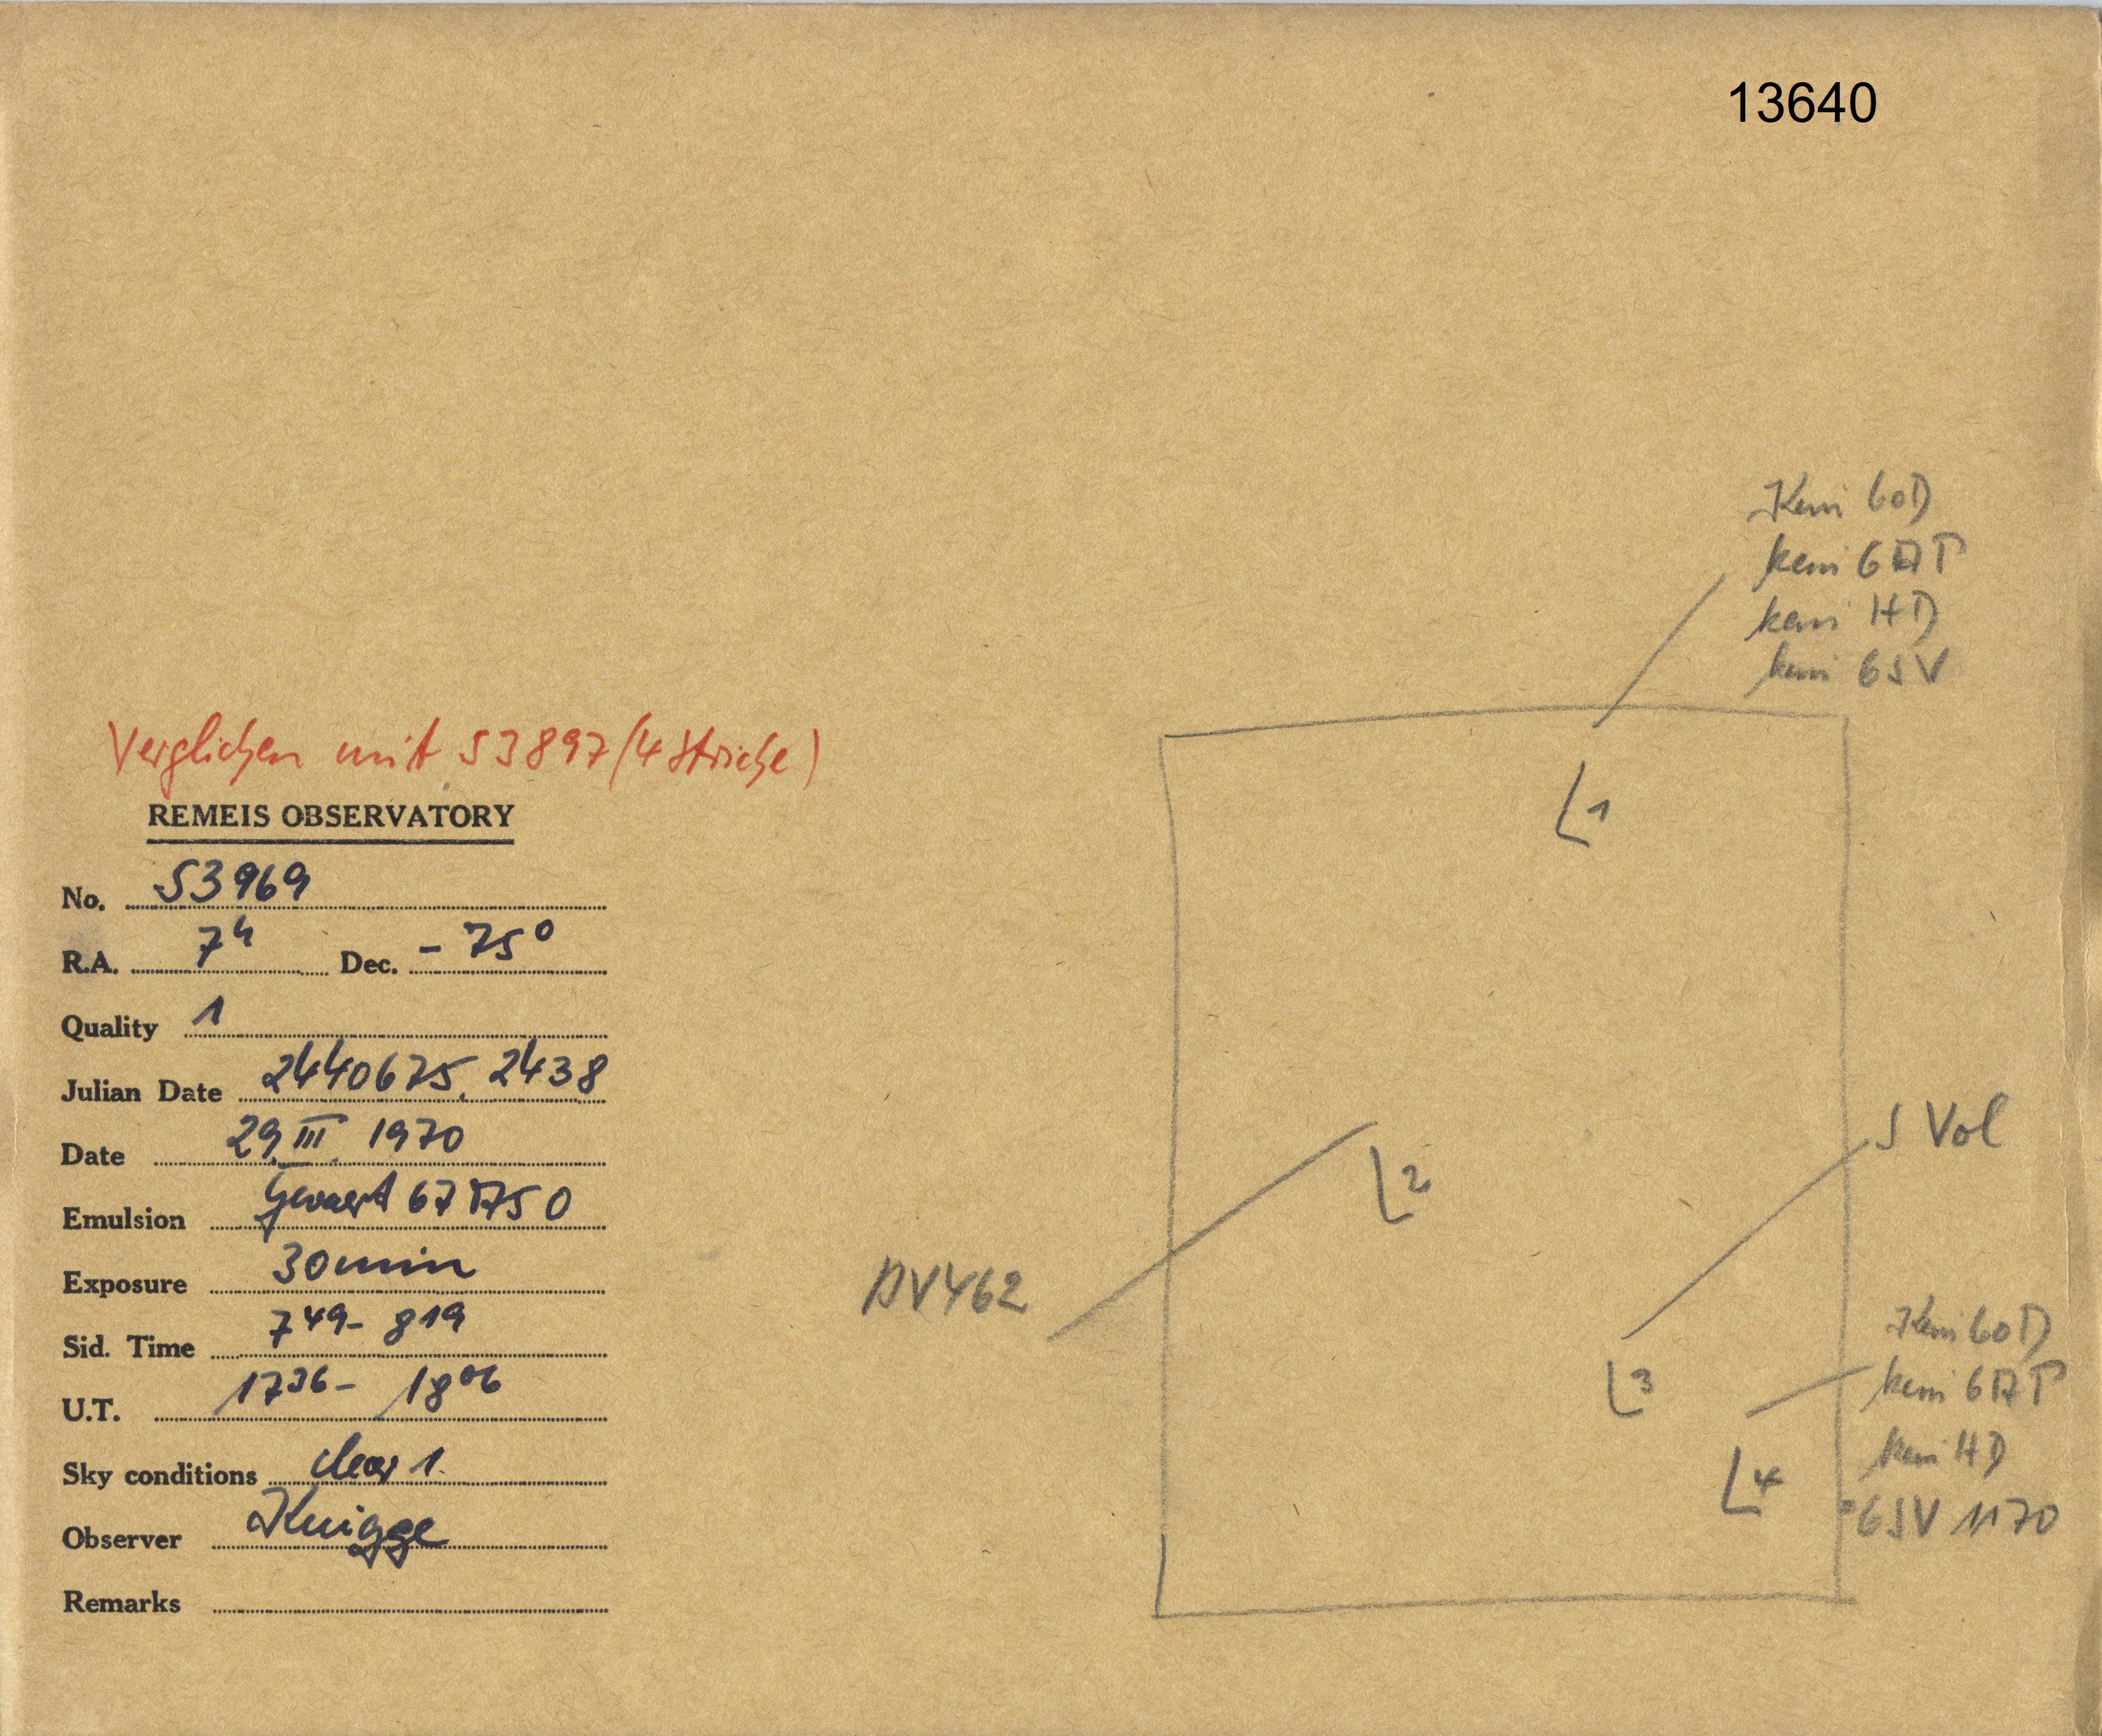 13640
Kein CoD
kein CAP
kein HD
kein CSV
Verglichen mit S3897 (4 Striche)
REMEIS OBSERVATORY
No. S3969
R.A. 7h Dec. - 75°
Quality 1
Julian Date 2440675.2438
Date 29. III. 1970
Emulsion Gevaert 67A50
Exposure 30 min
Sid. Time 7 49 - 8 19
U.T. 17 36 - 18 06
Sky conditions clear 1.
Observer Knigge
Remarks
1
2
3
4
S Vol
Kein CoD
kein
kein HD
CSV 1170